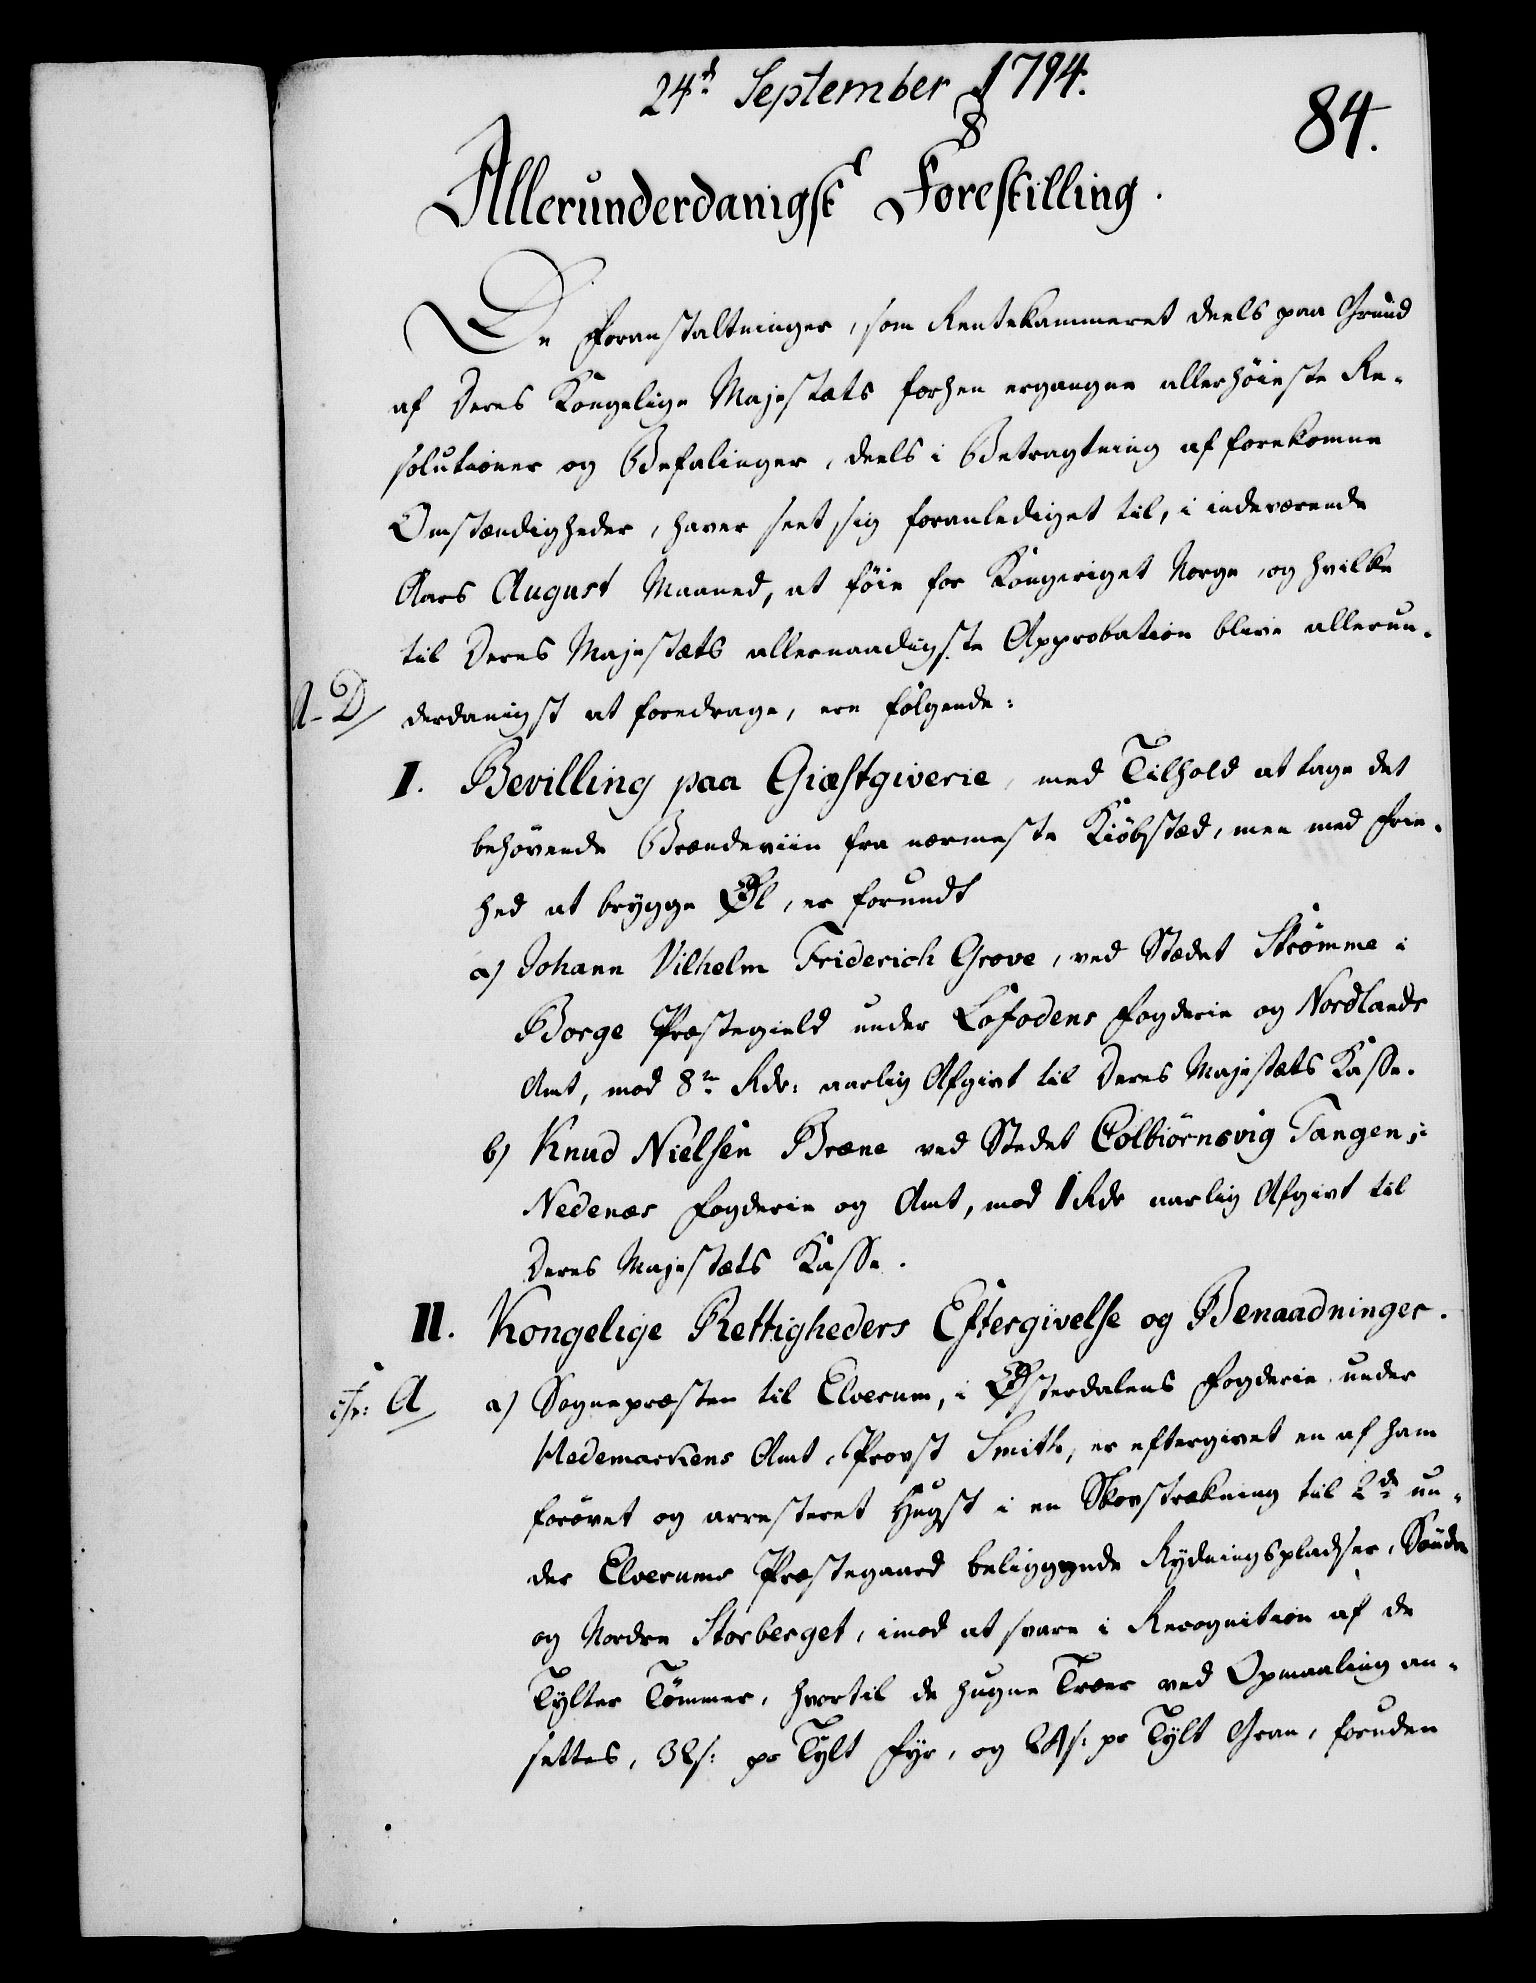 24de September 1794.
84.
Allerunderdanigst Forestilling.
De Foranstaltninger, som Rentekammeret deels paa Grund
af Deres Kongelige Majestæts forhen ergangne allerhøieste Re-
solutioner og Befalinger, deels i Betragtning af forekomne
Omstændigheder, haver seet sig foranlediget til, i indeværende
Aars August Maaned, at føie for Kongeriget Norge, og hvilke
til Deres Majestæts allernaadigste Approbation blive allerun-
A-D/ derdanigst at foredrage, ere følgende:
I. Bevilling paa Giæstgiverie, med Tilhold at tage det
behøvende Brændeviin fra nærmeste Kiöbstæd, men med Frie-
hed at brygge Øl, er forundt
a) Johann Vilhelm Friderich Grove, ved Stædet Strømme i
Borge Præstegield under Lofodens Fogderie og Nordlands
Amt, mod 8te Rdr: aarlig Afgivt til Deres Majestæts Kasse.
b) Knud Nielsen Bræne ved Stedet Colbiörnsvig Tangen, i
Nedenæs Fogderie og Amt, mod 1 Rdr aarlig Afgivt til
Deres Majestæts Kasse.
II. Kongelige Rettigheders Eftergivelse og Benaadninger.
cfr: A/ a) Sognepræsten til Elverum, i Østerdalens Fogderie under
Hedemarkens Amt, Provst Smith, er eftergivet en af ham
forøvet og arresteret Hugst i en Skovstrækning til 2de un-
der Elverums Præstegaard beliggende Rydningspladser, Søndre
og Nordre Storberget, imod at svare i Recognition af de
Tylter Tømmer, hvortil de hugne Træer ved Opmaaling an-
settes, 32s: pr Tylt Fyr, og 24s: pr Tylt Gran, foruden